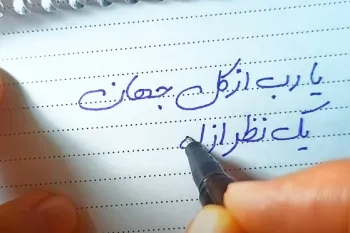 یا رب از کل جهان
یک نظر از